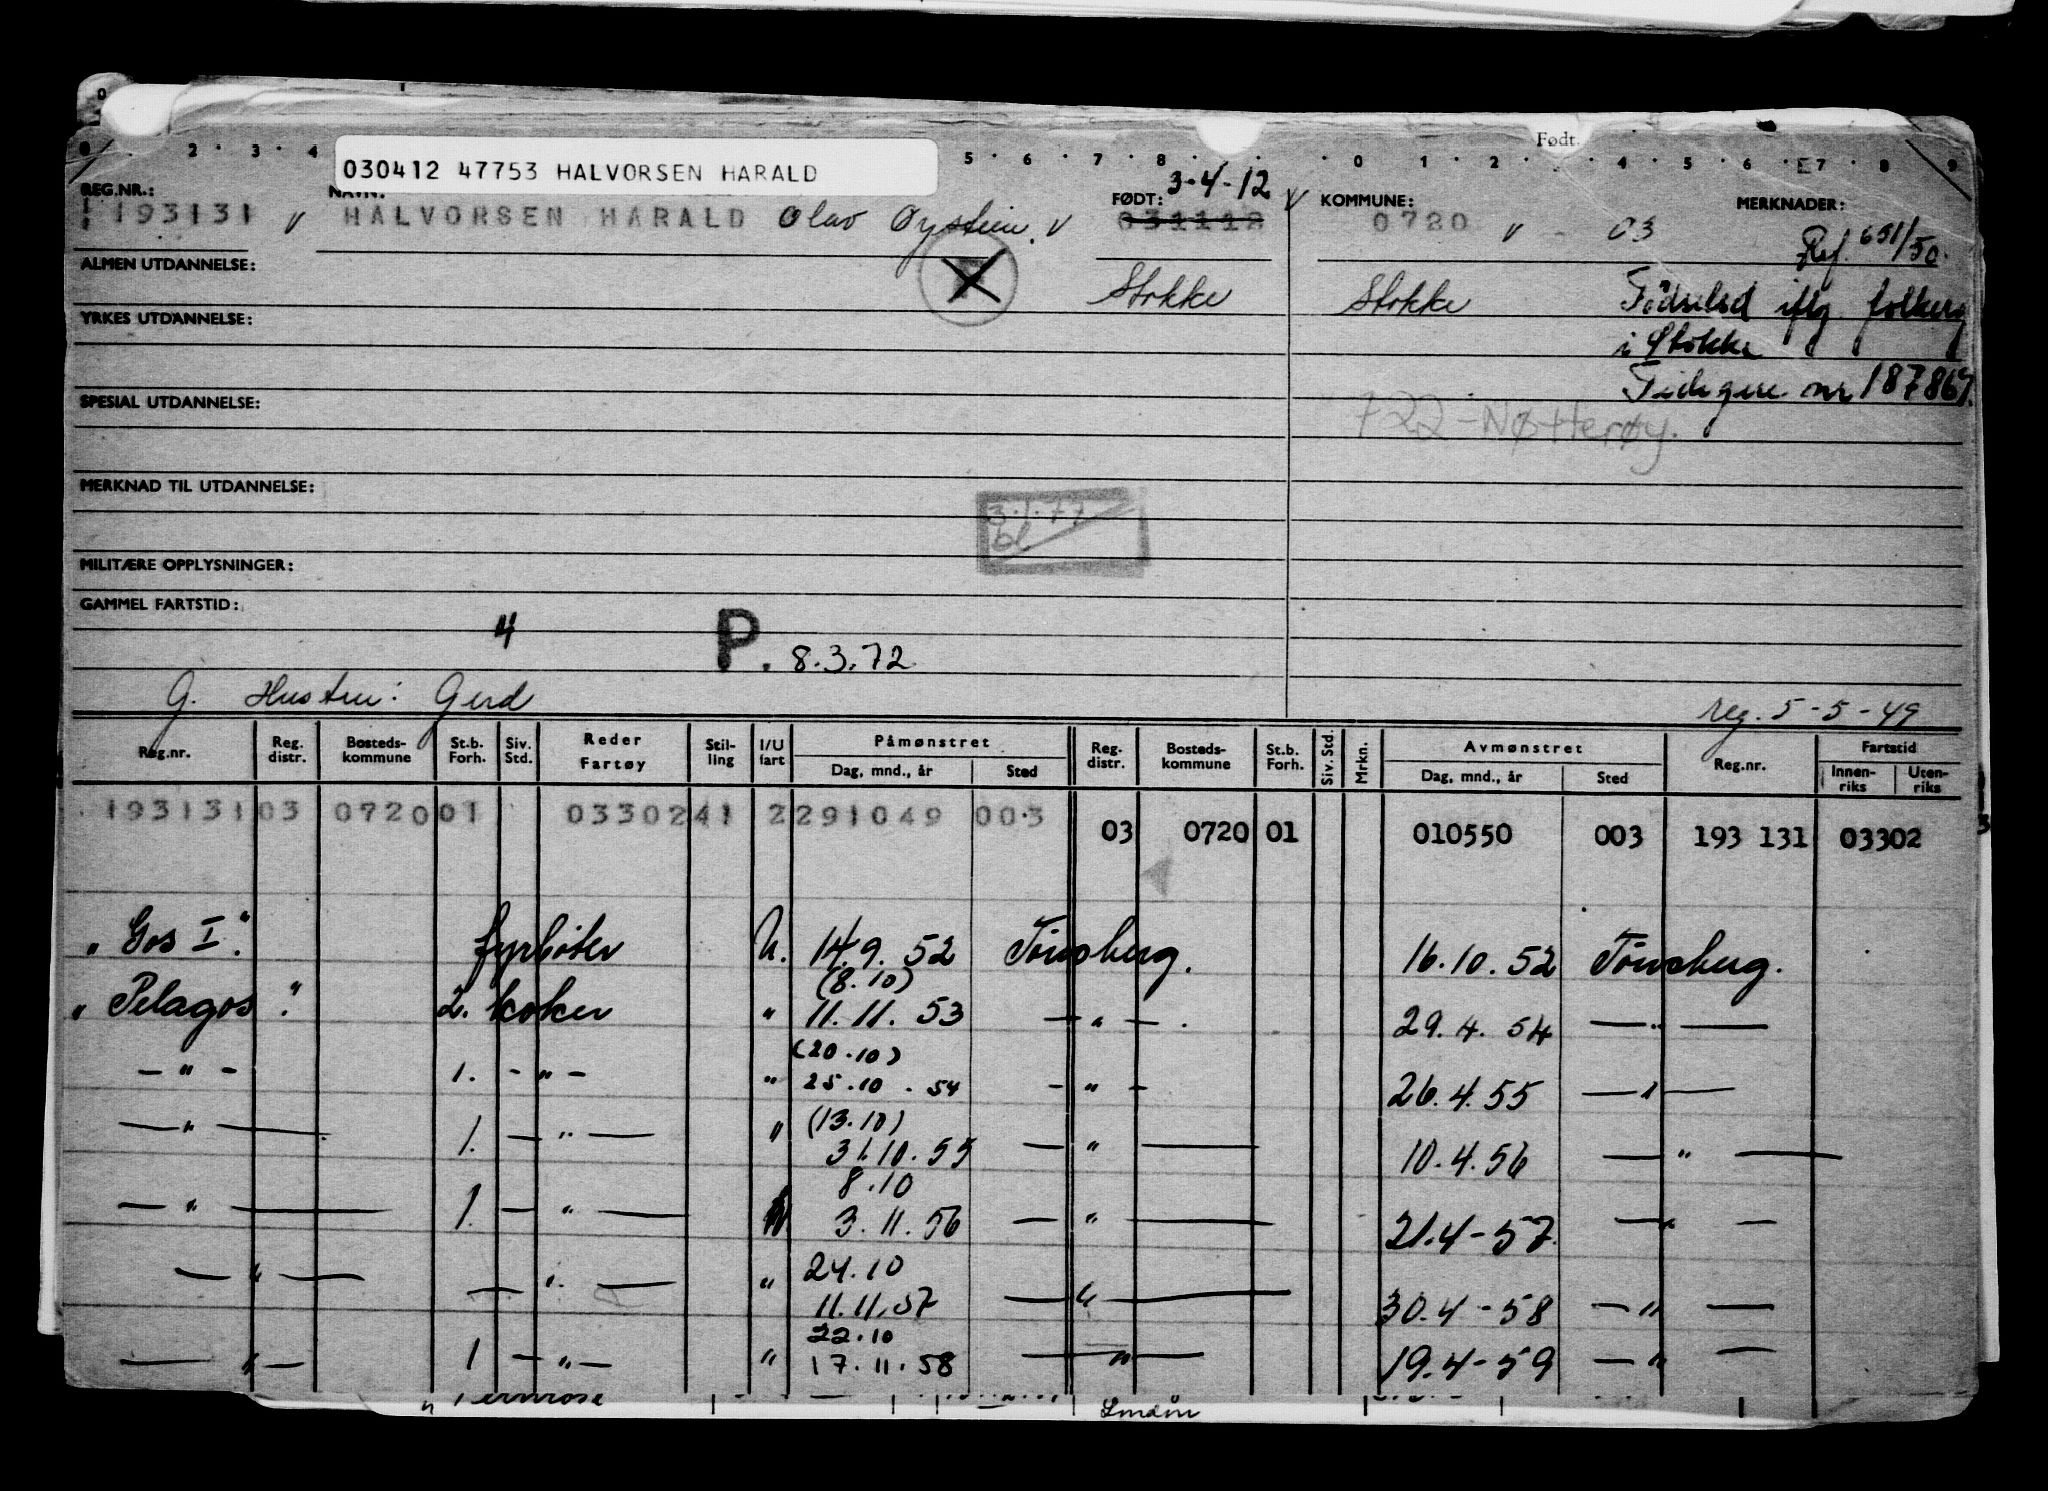 Født.
030412 47753 HALVORSEN HARALD
REG.NR.: NAVN: FØDT: 3-4-12 KOMMUNE: MERKNADER:
193131 v HALVORSEN HARALD Olav Øystein. v 031112 v 0720 v 03 Ref. 651/50.
ALMEN UTDANNELSE: Stokke Stokke Fødselsd iflg. folkereg
YRKES UTDANNELSE: i Stokke
Tidligere nr 187867.
SPESIAL UTDANNELSE: 722-Nøtterøy.
MERKNAD TIL UTDANNELSE:
3.1.77
bl
MILITÆRE OPPLYSNINGER:
GAMMEL FARTSTID:
4 P. 8.3.72
G. Hustru: Gerd reg. 5-5-49
Reg.nr. Reg. distr. Bosteds-kommune St.b. Forh. Siv. Std. Reder Fartøy Stil-ling I/U fart Påmønstret Dag, mnd., år Sted Reg. distr. Bosteds-kommune St.b. Forh. Siv. Std. Mrkn. Avmønstret Dag, mnd., år Sted Reg.nr. Fartstid Innen-riks Uten-riks
193131 03 0720 01 0330241 2 291049 003 03 0720 01 010550 003 193 131 03302
"Gos I". fyrbøter U. 14.9.52 Tønsberg. 16.10.52 Tønsberg.
(8.10)
"Pelagos". 2. koker " 11.11.53 — " — . 29.4.54 — " —
(20.10)
— " — 1. — " — " 25.10.54 — " — 26.4.55 — " —
(13.10)
— " — 1. — " — " 31.10.55 — " — 10.4.56 — " —
8.10
— " — 1. — " — 3.11.56 — " — 21.4-57. — " —
24.10
— " — — " — " 11.11.57 — " — 30.4-58 — " —
22.10
— " — 1 — " — " 17.11.58 — " — 19.4-59 — " —